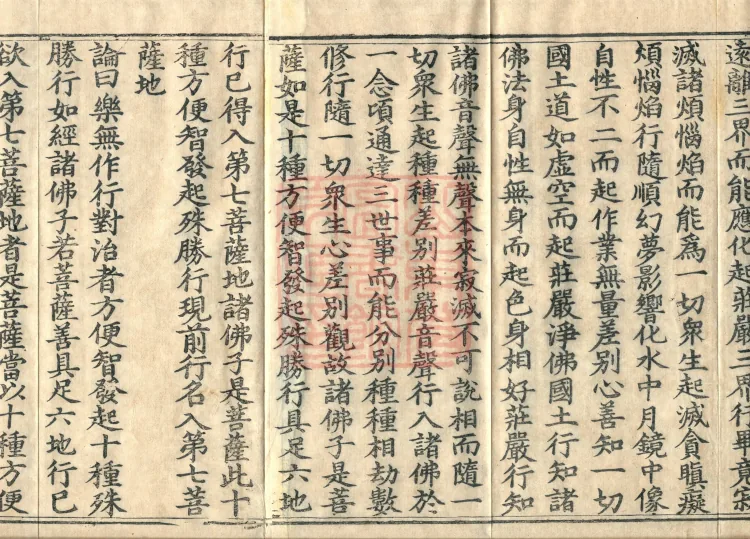 遠離三界而能應化起莊嚴三界行畢竟寂
滅諸煩惱焰而能為一切眾生起滅貪瞋癡
煩惱焰行隨順幻夢影響化水中月鏡中像
自性不二而起作業無量差別心善知一切
國土道如虛空而起莊嚴淨佛國土行知諸
佛法身自性無身而起色身相好莊嚴行知
諸佛音聲無聲本來寂滅不可說相而隨一
切眾生起種種差別莊嚴音聲行入諸佛於
一念頃通達三世事而能分別種種相劫數
修行隨一切眾生心差別觀故諸佛子是菩
薩如是十種方便智發起殊勝行具足六地
行已得入第七菩薩地諸佛子是菩薩此十
種方便智發起殊勝行現前行名入第七菩
薩地
論曰樂無作行對治者方便智發起十種殊
勝行如經諸佛子若菩薩善具足六地行已
欲入第七菩薩地者是菩薩當以十種方便